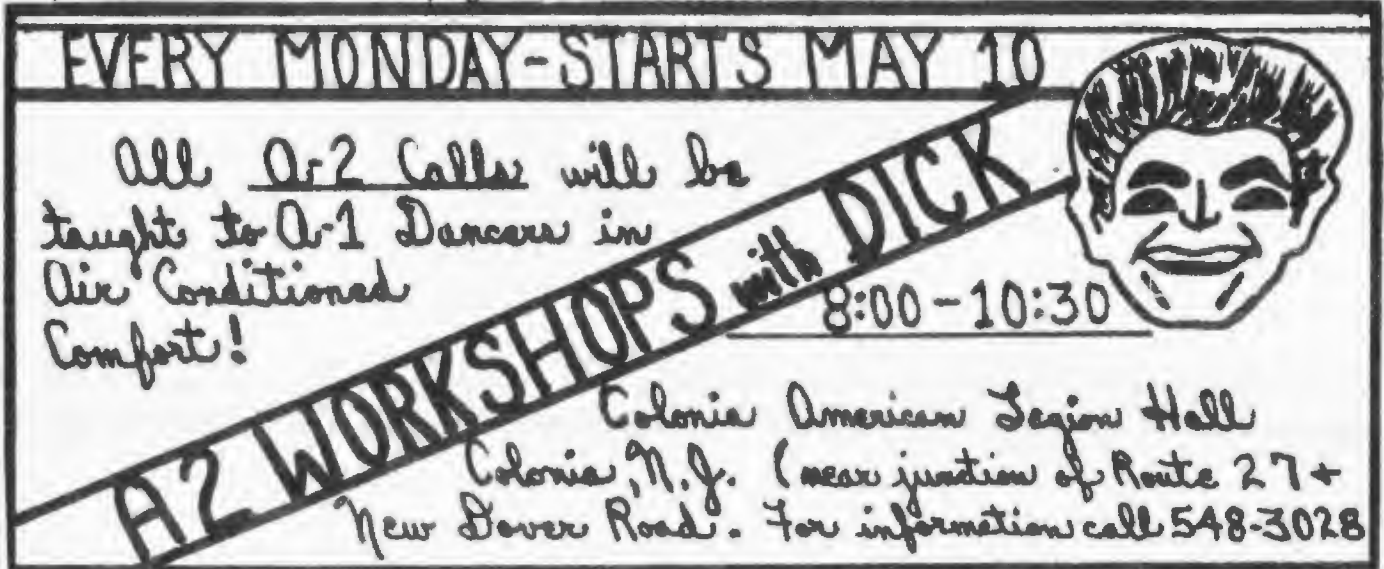 EVERY MONDAY-STARTS MAY 10
All A-2 Calls will be
taught to A-1 Dancers in
Air Conditioned
Comfort!
A2 WORKSHOPS with DICK
8:00-10:30
Colonia American Legion Hall
Colonia, N.J. (near junction of Route 27 +
New Dover Road. For information call 548-3028